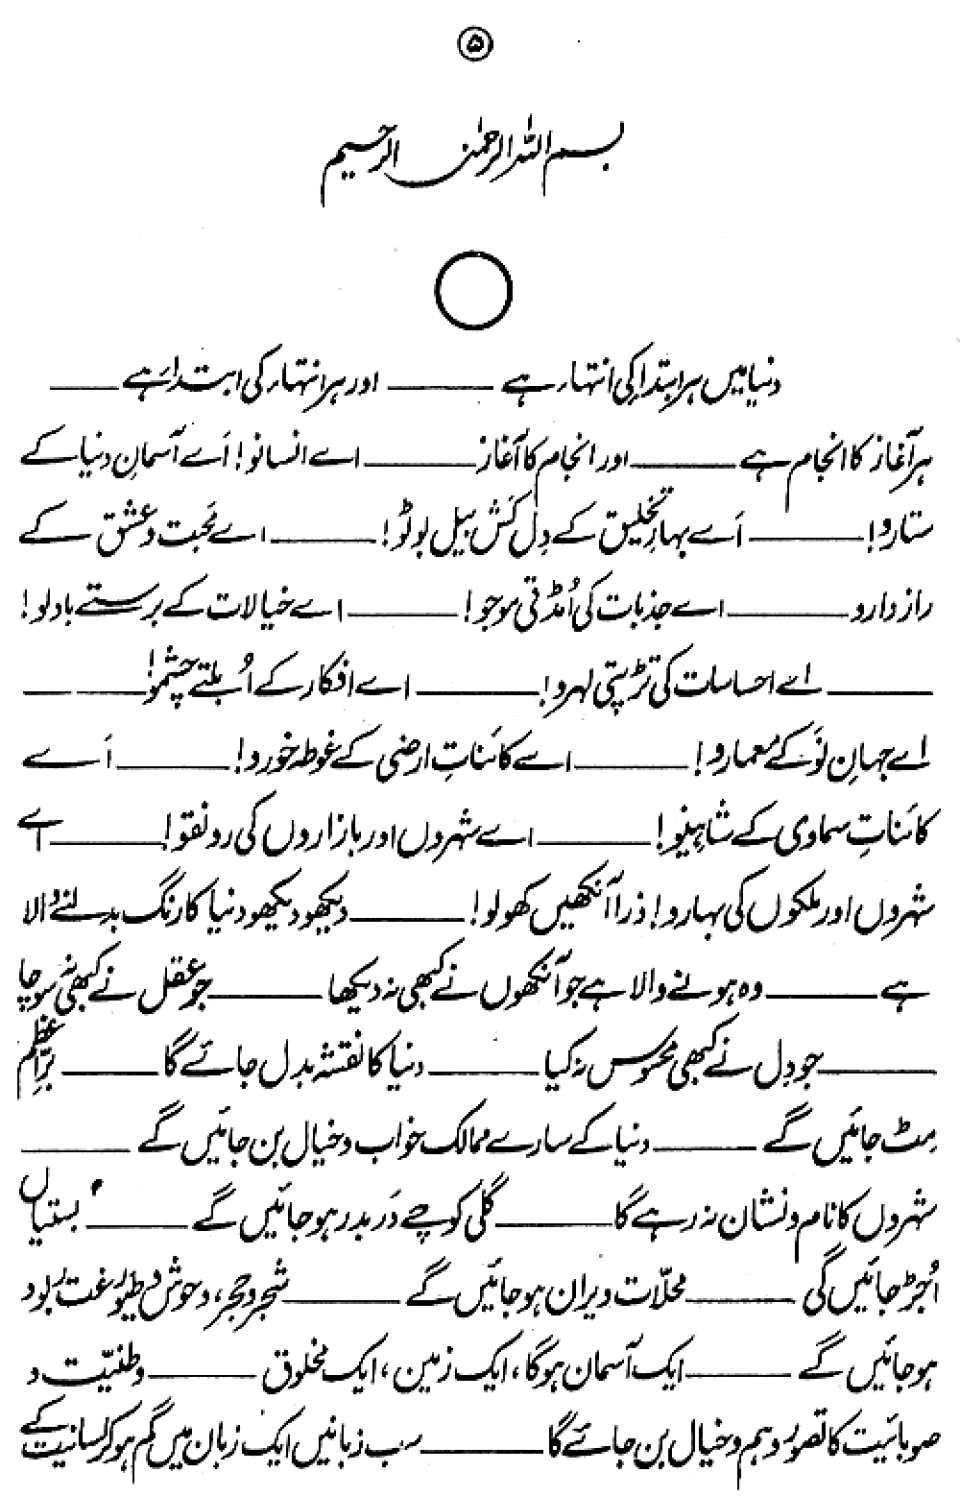 ۵
بسم اللہ الرحمٰن الرحیم
دنیا میں ہر ابتدا کی انتہاء ہے ——— اور ہر انتہاء کی ابتداء ہے ———
ہر آغاز کا انجام ہے ——— اور انجام کا آغاز ——— اے انسانو! اَے آسمانِ دنیا کے
ستارو! ——— اَے بہارِ تخلیق کے دِل کَش بیل بوٹو! ——— اے محبت و عشق کے
رازدارو ——— اے جذبات کی اُمڈتی موجو! ——— اے خیالات کے برستے بادلو!
——— اے احساسات کی تڑپتی لہرو! ——— اے افکار کے اُبلتے چشمو! ———
اے جہانِ نَو کے معمارو! ——— اے کائناتِ ارضی کے غوطہ خورو! ——— اَے
کائناتِ سماوی کے شاہینو! ——— اے شہروں اور بازاروں کی رونقو! ——— اے
شہروں اور ملکوں کی بہارو! ذرا آنکھیں کھولو! ——— دیکھو دیکھو دنیا کا رنگ بدلنے والا
ہے ——— وہ ہونے والا ہے جو آنکھوں نے کبھی نہ دیکھا ——— جو عقل نے کبھی نہ سوچا
——— جو دِل نے کبھی محسوس نہ کیا ——— دنیا کا نقشہ بدل جائے گا ——— برِّاعظم
مِٹ جائیں گے ——— دنیا کے سارے ممالک خواب و خیال بن جائیں گے ———
شہروں کا نام و نشان نہ رہے گا ——— گلی کوچے دَر بدر ہو جائیں گے ——— بستیاں
اُجڑ جائیں گی ——— محلّات ویران ہو جائیں گے ——— شجر و حجر، وحوش و طیور غت ربود
ہو جائیں گے ——— ایک آسمان ہوگا، ایک زمین، ایک مخلوق ——— وطنیّت و
صوبائیت کا تصور و ہم و خیال بن جائے گا ——— سب زبانیں ایک زبان میں گم ہو کر لسانیت کے